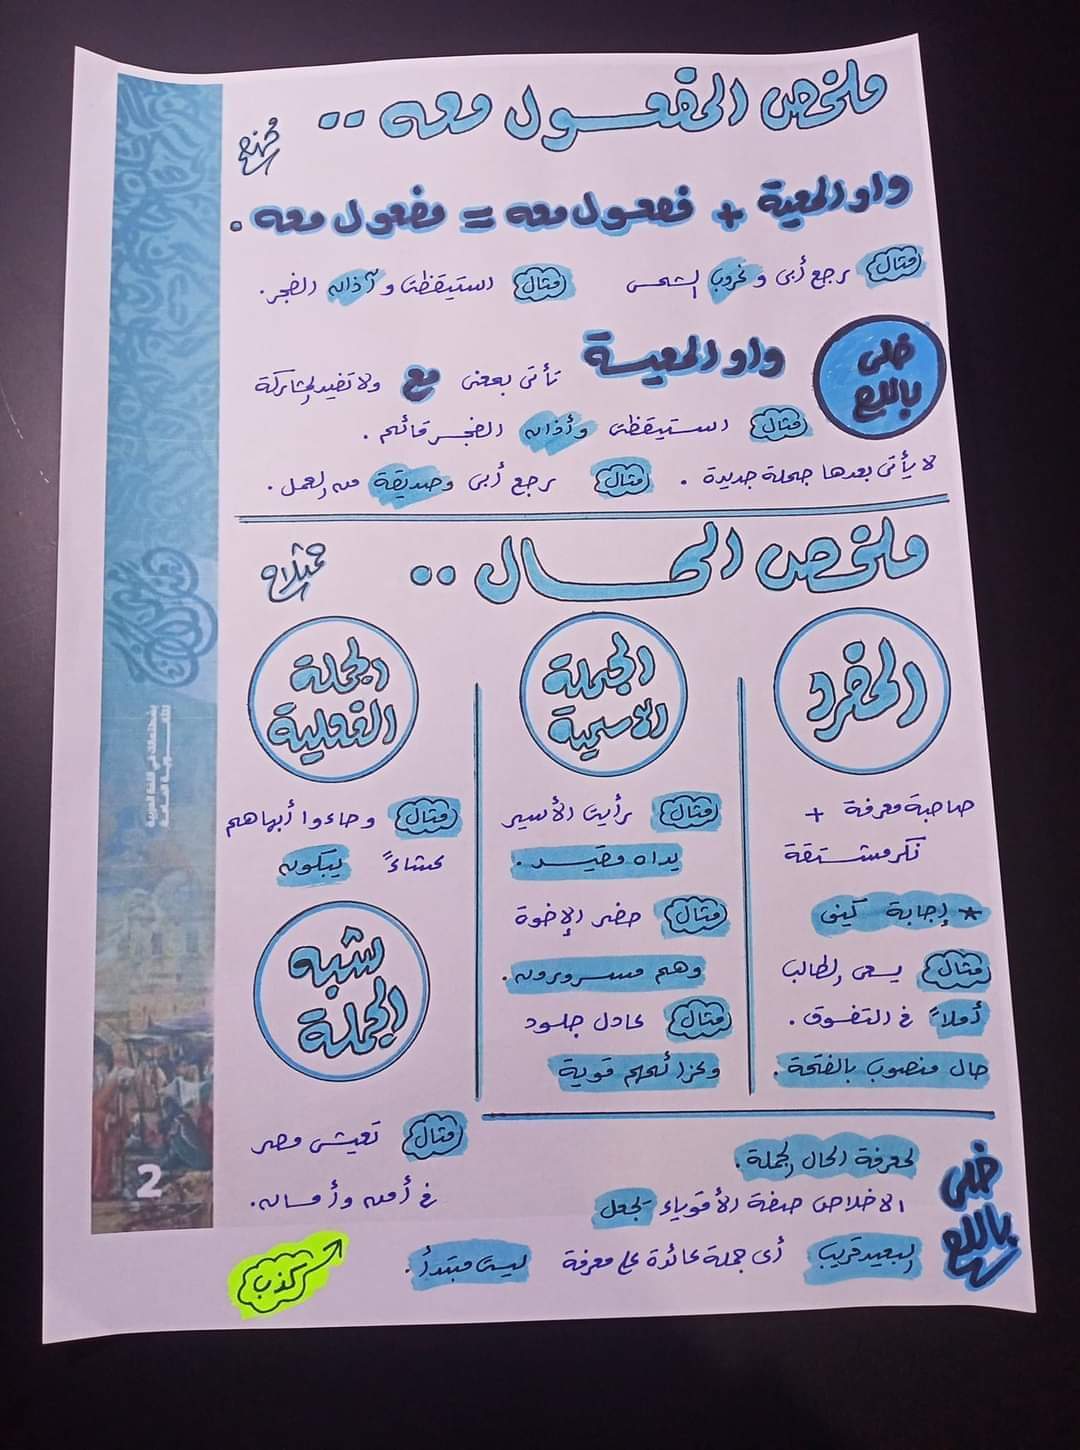 ملخص المفعول معه ..
واو المعية + مفعول معه = مفعول معه .
مثال يرجع أبى و غروب الشمس
مثال استيقظت و آذان الفجر .
خلى بالك
واو المعية تأتى بمعنى مع ولا تفيد المشاركة
مثال استيقظت وأذان الفجر قائم .
لا يأتى بعدها جملة جديدة . مثال يرجع أبى وصديقة من العمل .
ملخص الحال ..
المفرد
صاحبة معرفة +
نكر مشتقة
* إجابة كيف
مثال يسعى الطالب
أملاً فى التفوق .
حال منصوب بالفتحة .
الجملة الاسمية
مثال رأيت الأسير
يداه مقيد .
مثال حضر الإخوة
وهم مسرورون .
مثال عادل جلود
وعزائمهم قوية
الجملة الفعلية
مثال وجاءوا أبهاهم
عشاءً يبكون
شبه الجملة
مثال تعيش مصر
فى أمن وأمان .
خلى بالك
لمعرفة الحال الجملة .
الاخلاص صفة الأقوياء تجعل
البعيد قريب أى جملة عائدة على معرفة ليست مبتدأ .
كذب
2